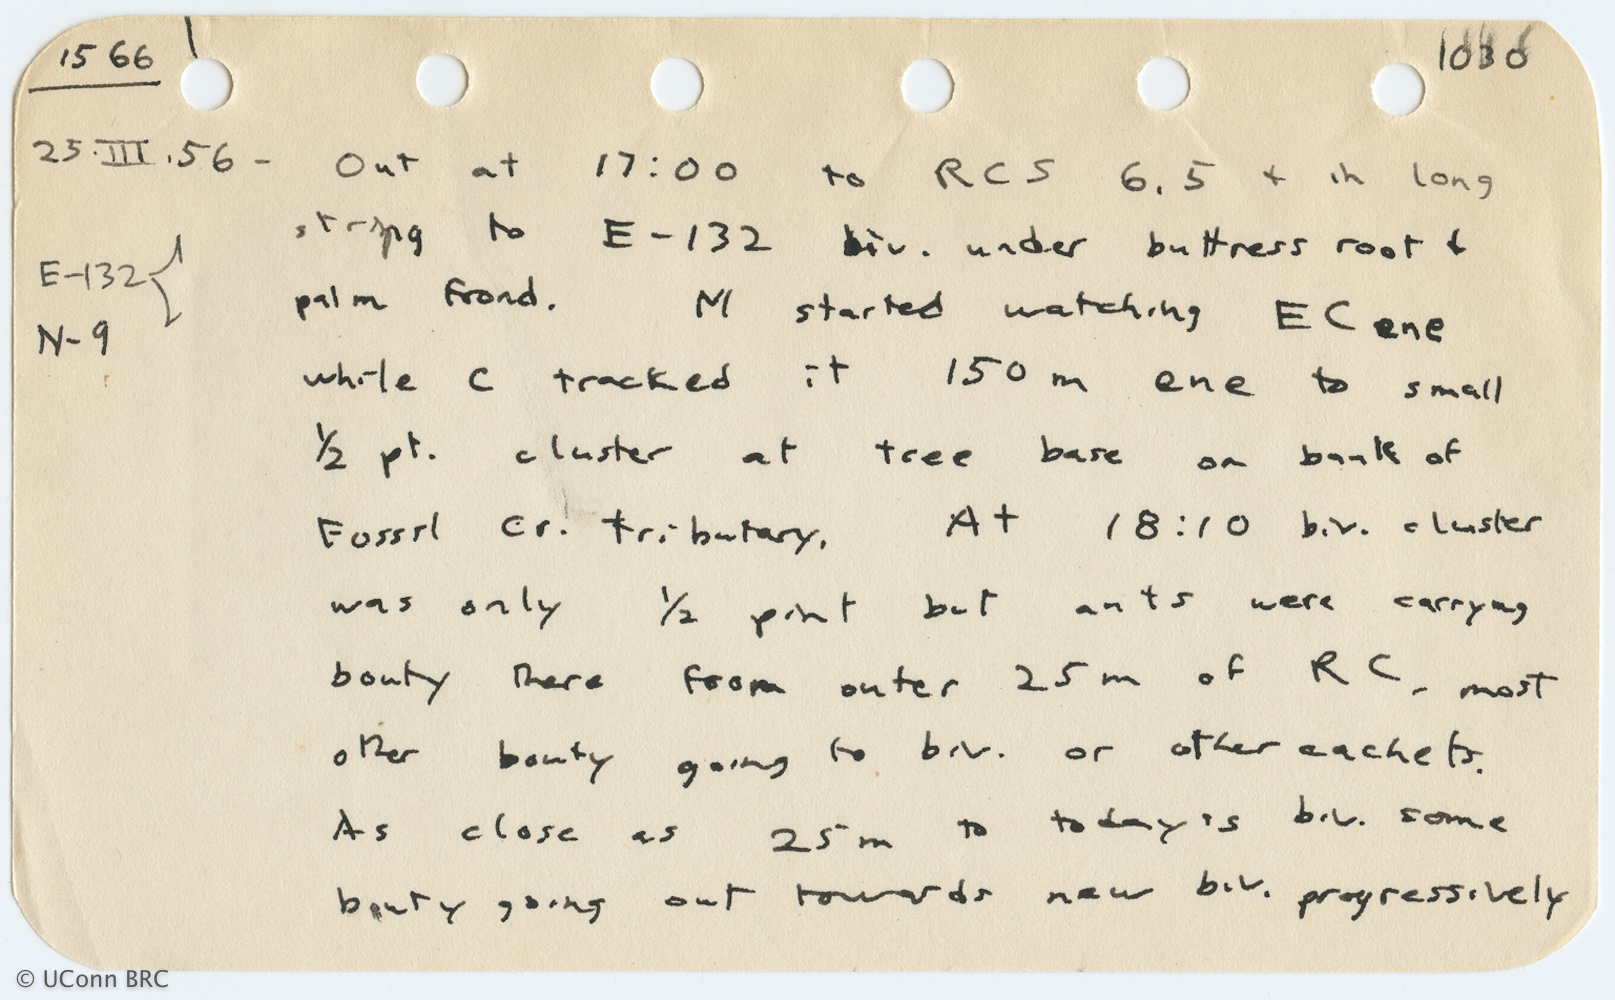 1566
1030
25.III.56 - Out at 17:00 to RCS 6.5 + in long
string to E-132 biv. under buttress root &
palm frond. M started watching EC ene
while C tracked it 150 m ene to small
1/2 pt. cluster at tree base on bank of
Fossil Cr. tributary. At 18:10 biv. cluster
was only 1/2 pint but ants were carrying
bouty there from outer 25 m of RC - most
other bouty going to biv. or other cachets.
As close as 25 m to today's biv. some
bouty going out towards new biv. progressively
E-132
N-9
© UConn BRC